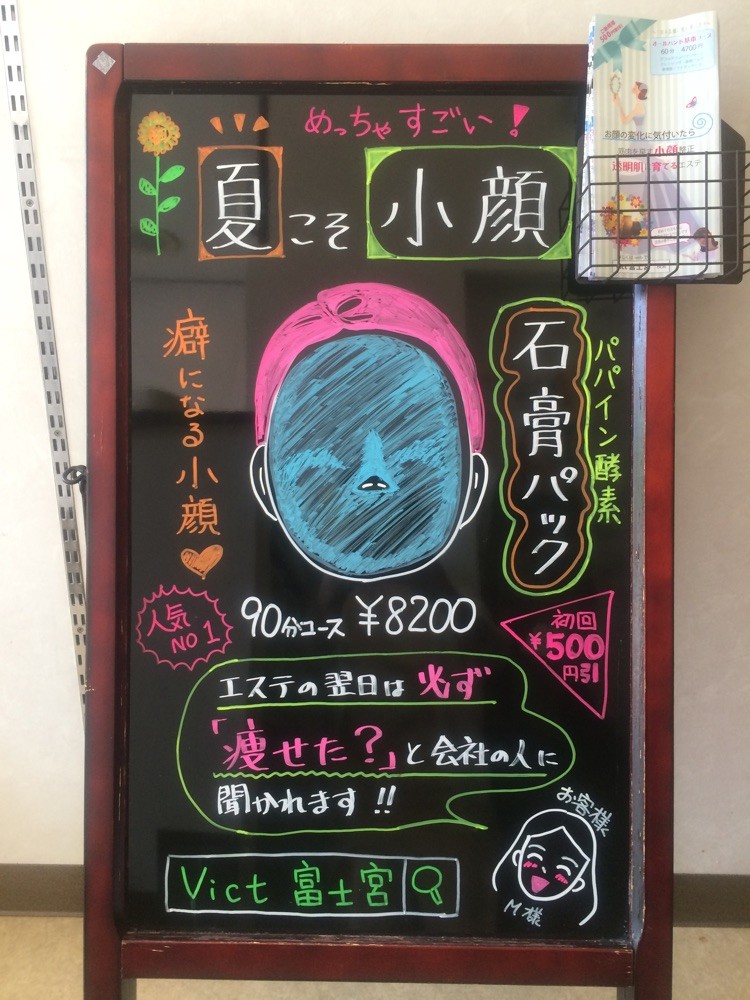 めっちゃすごい!
夏こそ小顔
石膏パック
パパイン酵素
癖になる小顔
人気
NO1
90分コース ¥8200
初回
¥500
円引
エステの翌日は必ず
「痩せた?」と会社の人に
聞かれます!!
お客様
M様
Vict 富士宮
60分 4700円
お顔の変化に気付いたら
小顔矯正
透明肌を育てるエステ